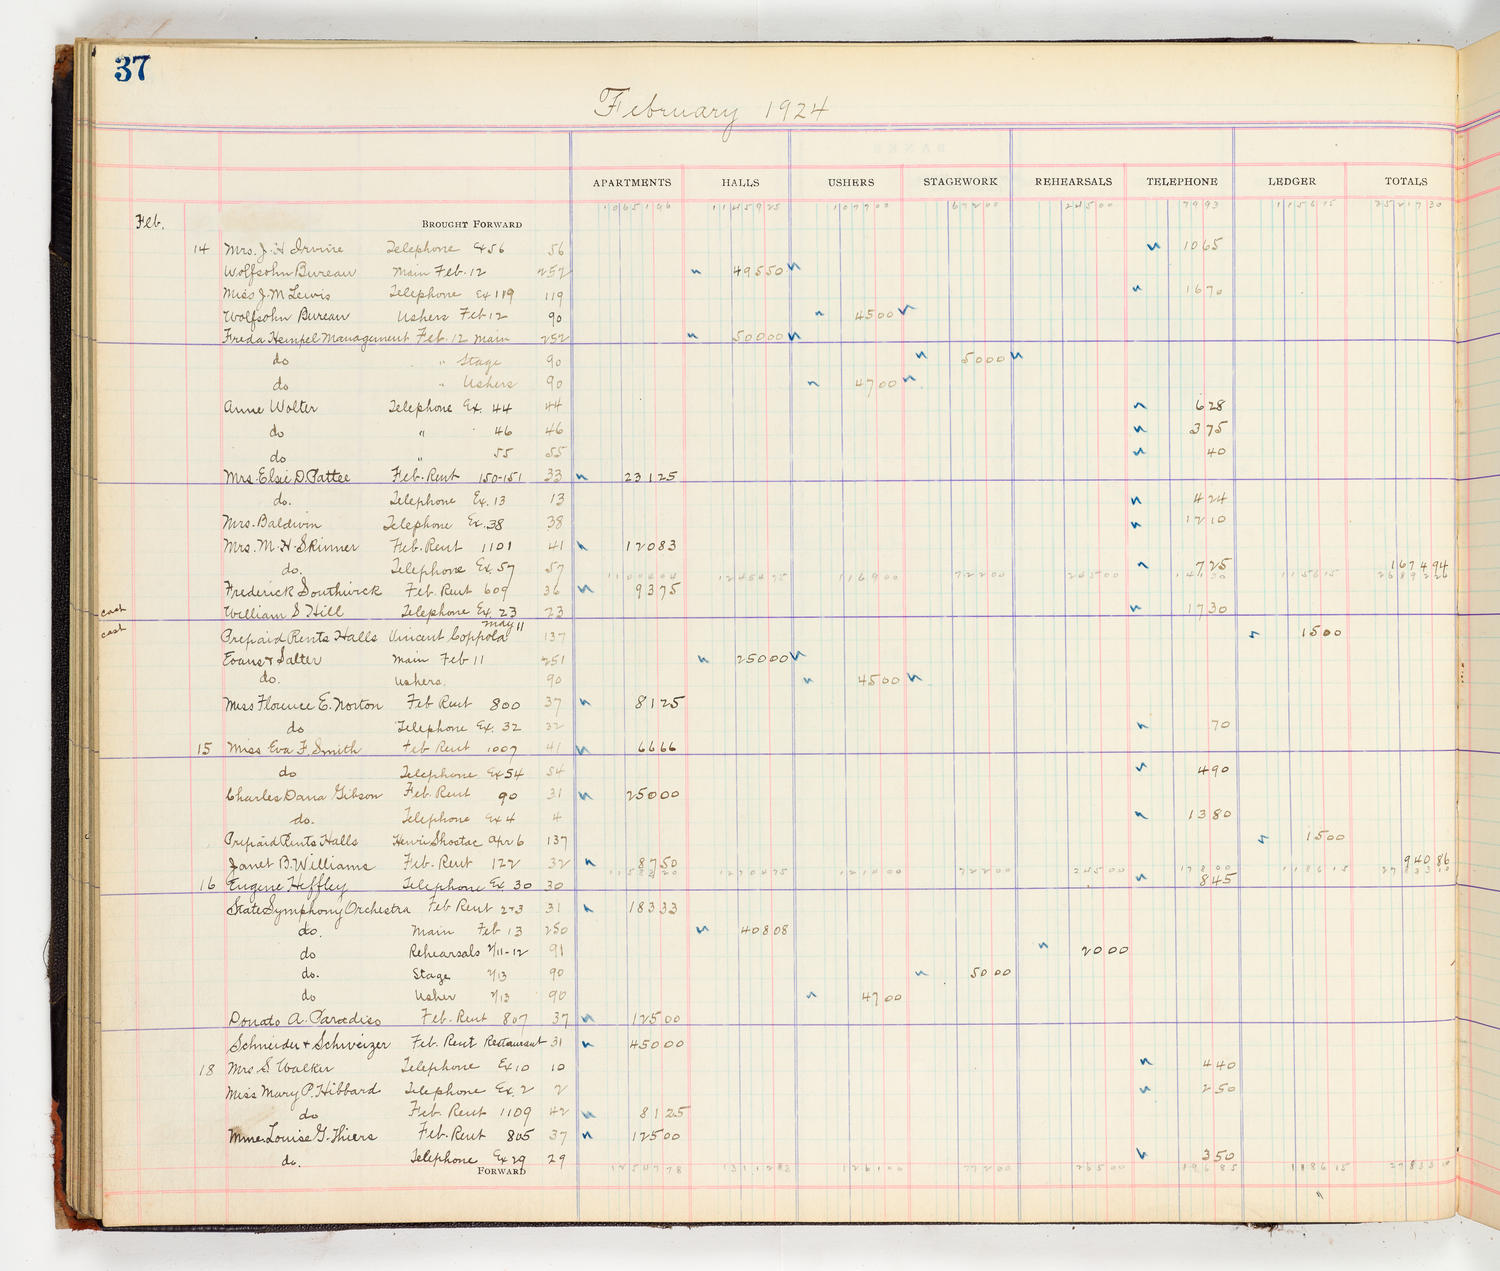 37
February 1924
APARTMENTS HALLS USHERS STAGEWORK REHEARSALS TELEPHONE LEDGER TOTALS
Feb. BROUGHT FORWARD 1065196 1145925 107700 67200 24500 7993 115615 2521730
14 Mrs. J. H. Irvine Telephone Ex 56 56 1065
Wolfsohn Bureau Main Feb. 12 252 49550
Miss J. M Lewis Telephone Ex 119 119 1670
Wolfsohn Bureau Ushers Feb 12 90 4500
Freda Hempel Management Feb. 12 Main 252 50000
do " Stage 90 5000
do " Ushers 90 4700
Anne Wolter Telephone Ex. 44 44 628
do " 46 46 375
do " 55 55 40
Mrs. Elsie D. Pattee Feb. Rent 150-151 33 23125
do. Telephone Ex. 13 13 424
Mrs. Baldwin Telephone Ex. 38 38 1210
Mrs. M. H. Skinner Feb. Rent 1101 41 12083
do. Telephone Ex. 57 57 725 167494
1100404 1245475 116900 72200 24500 115615
Frederick Southwick Feb. Rent 609 36 9375
cash William S Hill Telephone Ex. 23 23 1730
cash Prepaid Rents Halls Vincent Coppola May 11 137 1500
Evans & Salter Main Feb 11 251 25000
do. Ushers. 90 4500
Miss Florence E. Norton Feb Rent 800 37 8125
do Telephone Ex. 32 32 70
15 Miss Eva F. Smith Feb Rent 1007 41 6666
do Telephone Ex 54 54 490
Charles Dana Gibson Feb. Rent 90 31 25000
do. Telephone Ex 4 4 1380
Prepaid Rents Halls Henri Shostac Apr 6 137 1500
Janet B. Williams Feb. Rent 122 32 8750 94086
1270475 121400 72200 24500 17800 118615
16 Eugene Heffley Telephone Ex 30 30 845
State Symphony Orchestra Feb Rent 273 31 18333
do. Main Feb 13 250 40808
do Rehearsals 2/11-12 91 2000
do. Stage 2/13 90 5000
do Usher 2/13 90 4700
Donato A. Paradiso Feb. Rent 807 37 12500
Schneider & Schweizer Feb. Rent Restaurant 31 45000
18 Mrs S. Walker Telephone Ex 10 10 440
Miss Mary P. Hibbard Telephone Ex. 2 2 250
do Feb. Rent 1109 42 8125
Mme. Louise G. Thiers Feb. Rent 805 37 12500
do. Telephone Ex 29 29 350
FORWARD 1254778 1311283 126100 77200 26500 19685 118615